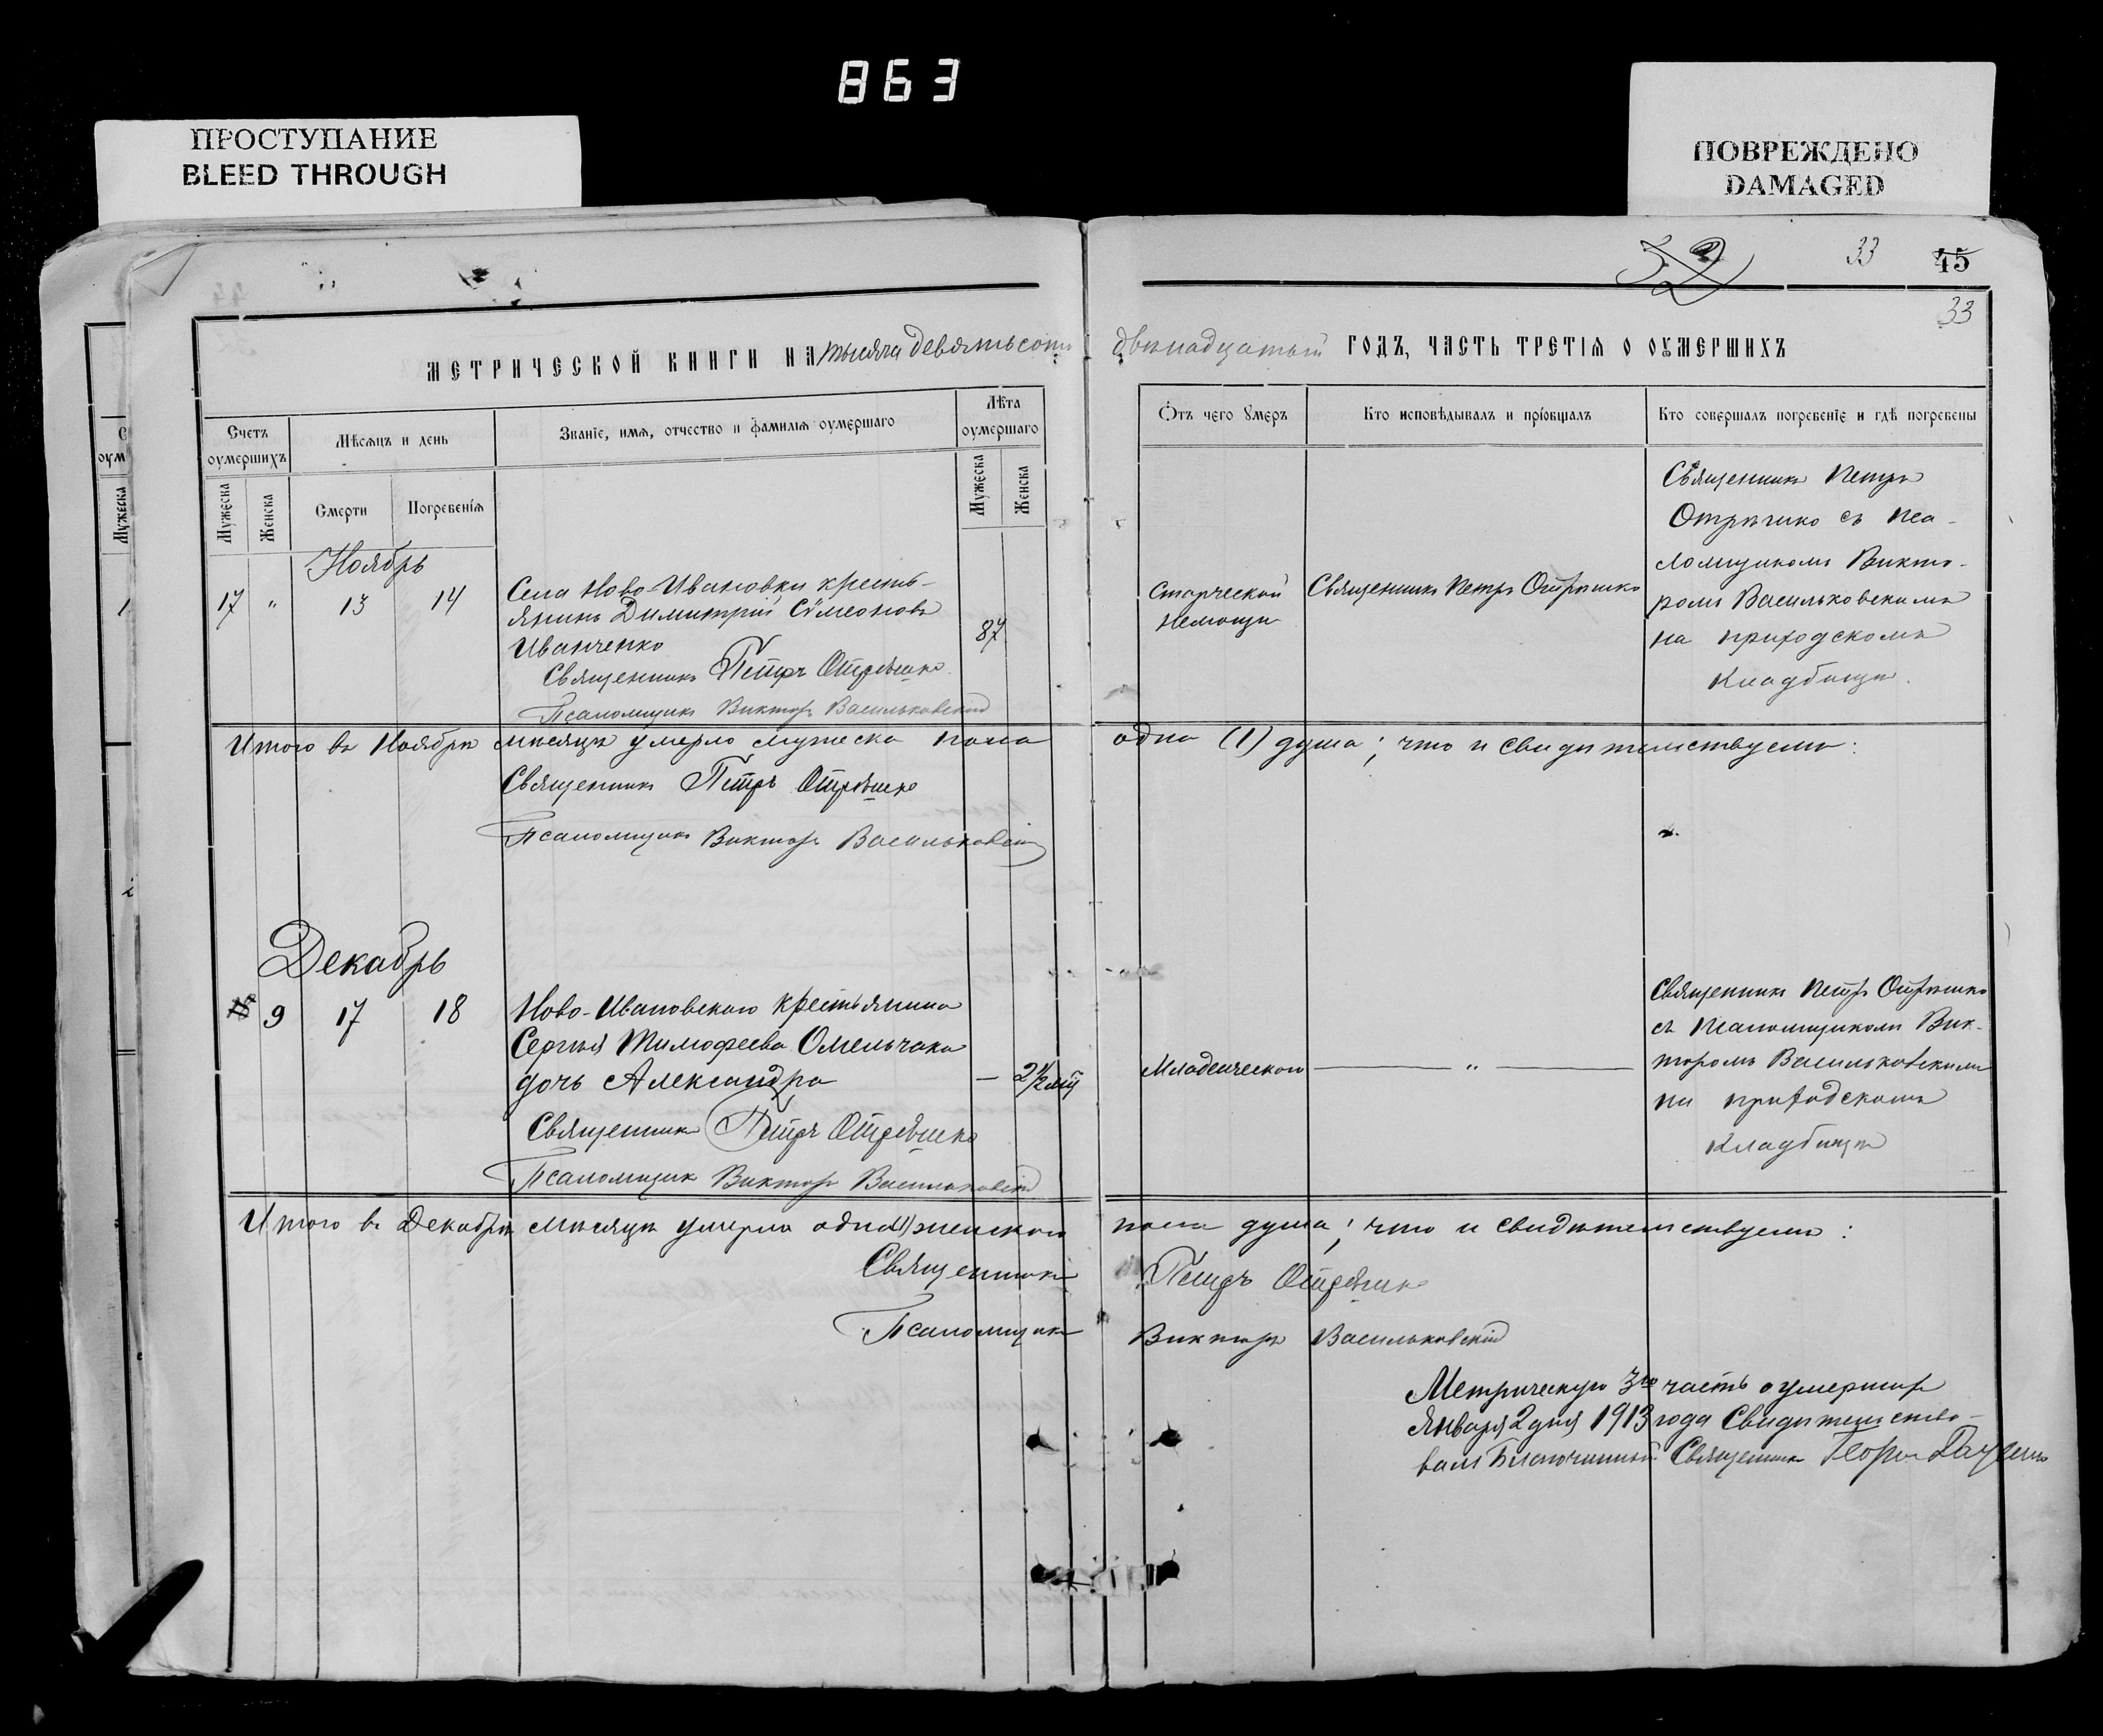 863
ПРОСТУПАНИЕ
BLEED THROUGH
ПОВРЕЖДЕНО
DAMAGED
33 45
33
МЕТРИЧЕСКОЙ КНИГИ НА тысяча девятьсотъ двѣнадцатый ГОДЪ, ЧАСТЬ ТРЕТІЯ О ОУМЕРШИХЪ
Счетъ оумершихъ
Мужеска
Женска
Мѣсяцъ и день
Смерти
Погребенія
Званіе, имя, отчество и фамилія оумершаго
Лѣта оумершаго
Мужеска
Женска
Отъ чего умеръ
Кто исповѣдывалъ и пріобщалъ
Кто совершалъ погребеніе и гдѣ погребены
Ноябрь
17 " 13 14
Села Ново-Ивановки кресть-
янинъ Димитрій Сѵмеоновъ
Иванченко
87
Священникъ Петръ Отрѣшко
Псаломщикъ Викторъ Васильковскій
Старческой
немощи
Священникъ Петръ Отрѣшко
Священникъ Петръ
Отрѣшко съ пса-
ломщикомъ Викто-
ромъ Васильковскимъ
на приходскомъ
кладбищѣ.
Итого въ Ноябрѣ мѣсяцѣ умерло мужеска пола одна (1) душа; что и свидѣтельствуемъ:
Священникъ Петръ Отрѣшко
Псаломщикъ Викторъ Васильковскій
Декабрь
18 9 17 18
Ново-Ивановскаго крестьянина
Сергѣя Тимофеева Омельчака
дочь Александра
— 2 1/2 мѣ
Священникъ Петръ Отрѣшко
Псаломщикъ Викторъ Васильковскій
Младенческой
— " —
Священникъ Петръ Отрѣшко
съ псаломщикомъ Вик-
торомъ Васильковскимъ
на приходскомъ
кладбищѣ
Итого въ Декабрѣ мѣсяцѣ умерла одна (1) женскаго пола душа; что и свидѣтельствуемъ:
Священникъ Петръ Отрѣшко
Псаломщикъ Викторъ Васильковскій
Метрическую 3ю часть о умершихъ
Января 2 дня 1913 года Свидѣтельство-
валъ Благочинный Священникъ